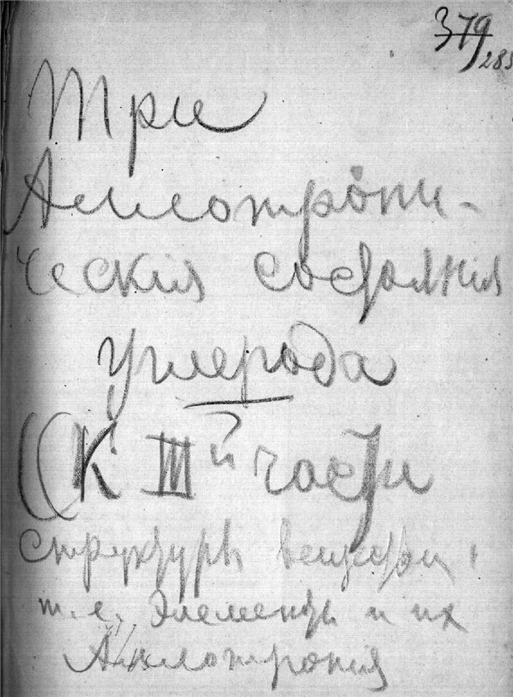 379
285
Три
Аллотропи-
ческія состоянія
углерода
(К III й части
структуры веществ,
т.е. Элементы и их
Аллотропія